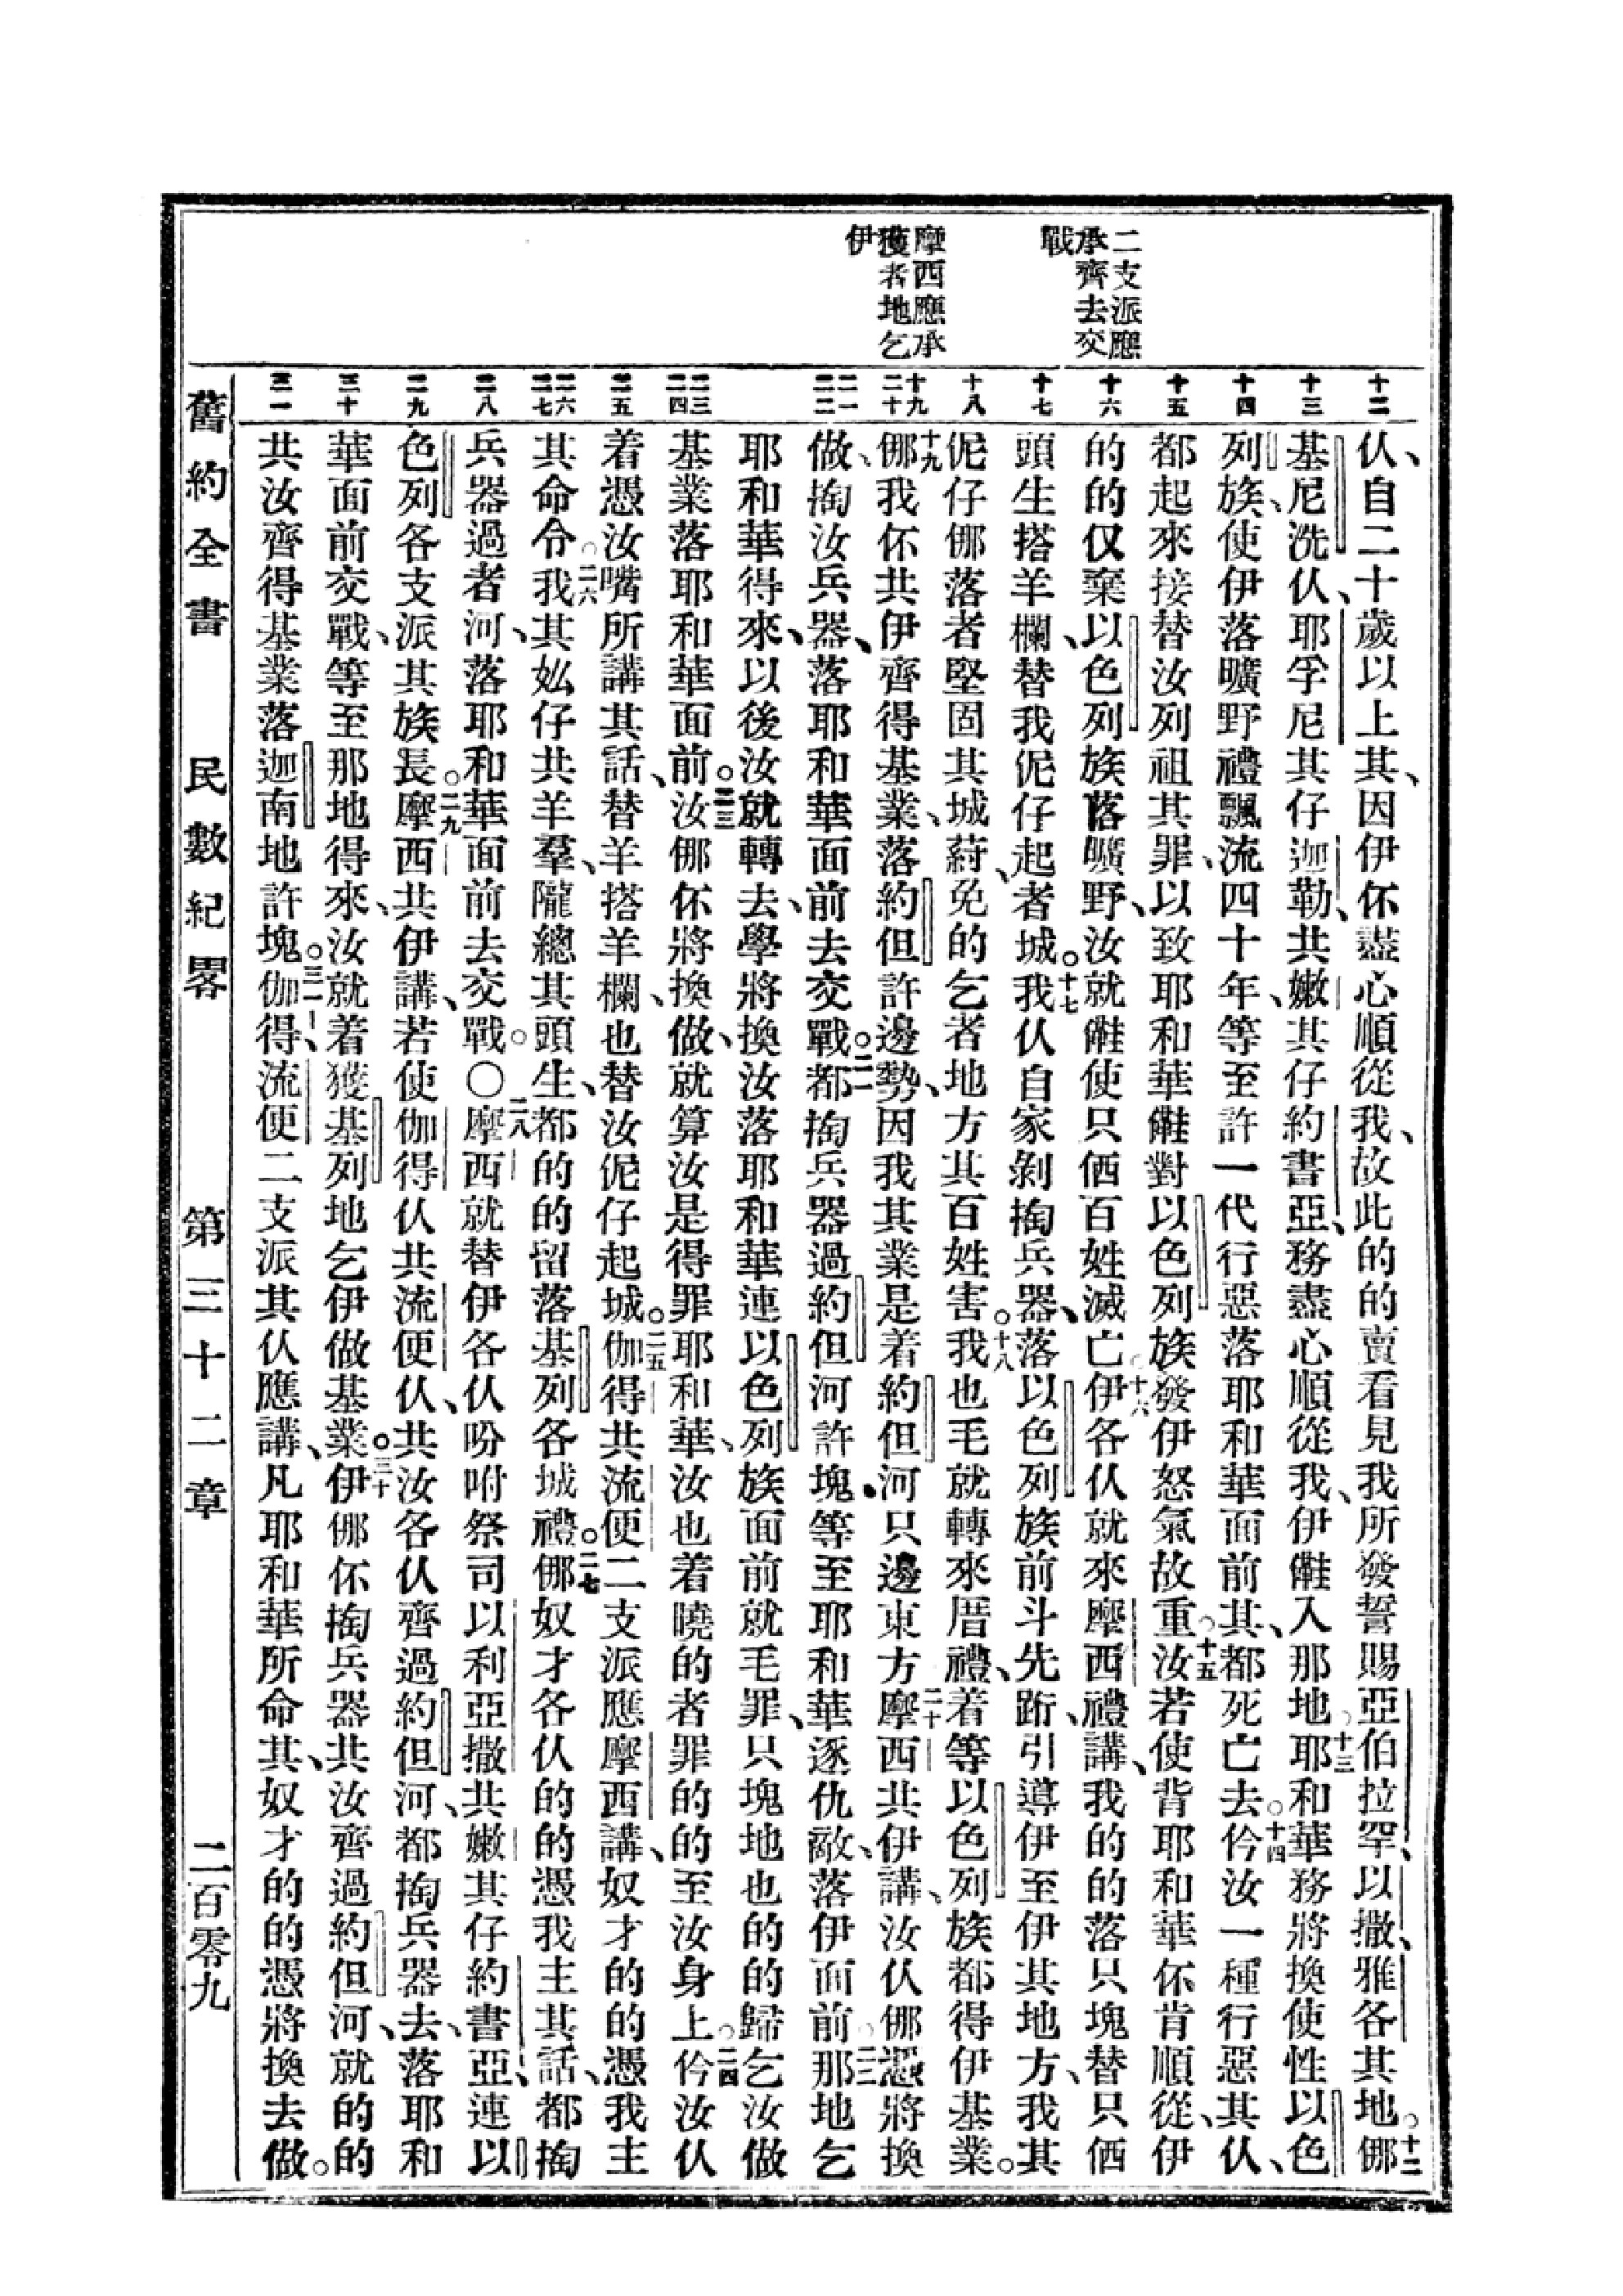 二支派應
承齊去交
戰
摩西應承
獲者地乞
伊
十二
十三
十四
十五
十六
十七
十八
十九
二十
二一
二二
二三
二四
二五
二六
二七
二八
二九
三十
三一
仈、自二十歲以上其、因伊伓盡心順從我、故此的的賣看見我所發誓賜亞伯拉罕、以撒、雅各其地。十二哪
基尼洗仈、耶孚尼其仔迦勒、共嫩其仔約書亞、務盡心順從我、伊𠆧入那地。十三耶和華務將換使性以色
列族、使伊落曠野禮飄流四十年、等至許一代行惡落耶和華面前其、都死亡去。十四仱汝一種行惡其仈、
都起來接替汝列祖其罪、以致耶和華𠆧對以色列族發伊怒氣故重。十五汝若使背耶和華伓肯順從、伊
的的仅棄以色列族落曠野、汝就𠆧使只𠐅百姓滅亡。十六伊各仈就來摩西禮講、我的的落只塊替只𠐅
頭生搭羊欄、替我伲仔起者城。十七我仈自家剝掏兵器、落以色列族前斗先跱、引導伊至伊其地方、我其
伲仔哪落者堅固其城、葤免的乞者地方其百姓害。十八我也毛就轉來厝禮、着等以色列族都得伊基業。
十九哪我伓共伊齊得基業、落約但許邊勢、因我其業是着約但河只邊東方。二十摩西共伊講、汝仈哪憑將換
做、掏汝兵器、落耶和華面前去交戰。二一都掏兵器過約但河許塊、等至耶和華逐仇敵、落伊面前。二二那地乞
耶和華得來、以後汝就轉去、學將換汝落耶和華連以色列族面前就毛罪、只塊地也的的歸乞汝做
基業落耶和華面前。二三汝哪伓將換做、就算汝是得罪耶和華、汝也着曉的者罪的的至汝身上。二四仱汝仈
着憑汝嘴所講其話、替羊搭羊欄、也替汝伲仔起城。二五伽得共流便二支派應摩西講、奴才的的憑我主
其命令。二六我其妚仔共羊羣、隴總其頭生、都的的留落基列各城禮。二七哪奴才各仈的的憑我主其話、都掏
兵器過者河、落耶和華面前去交戰。○二八摩西就替伊各仈吩咐祭司以利亞撒共嫩其仔約書亞、連以
色列各支派其族長。二九摩西共伊講、若使伽得仈共流便仈、共汝各仈齊過約但河、都掏兵器去、落耶和
華面前交戰、等至那地得來、汝就着獲基列地乞伊做基業。三十伊哪伓掏兵器共汝齊過約但河、就的的
共汝齊得基業落迦南地許塊。三一伽得、流便二支派其仈應講、凡耶和華所命其、奴才的的憑將換去做。
舊約全書 民數紀畧 第三十二章 二百零九